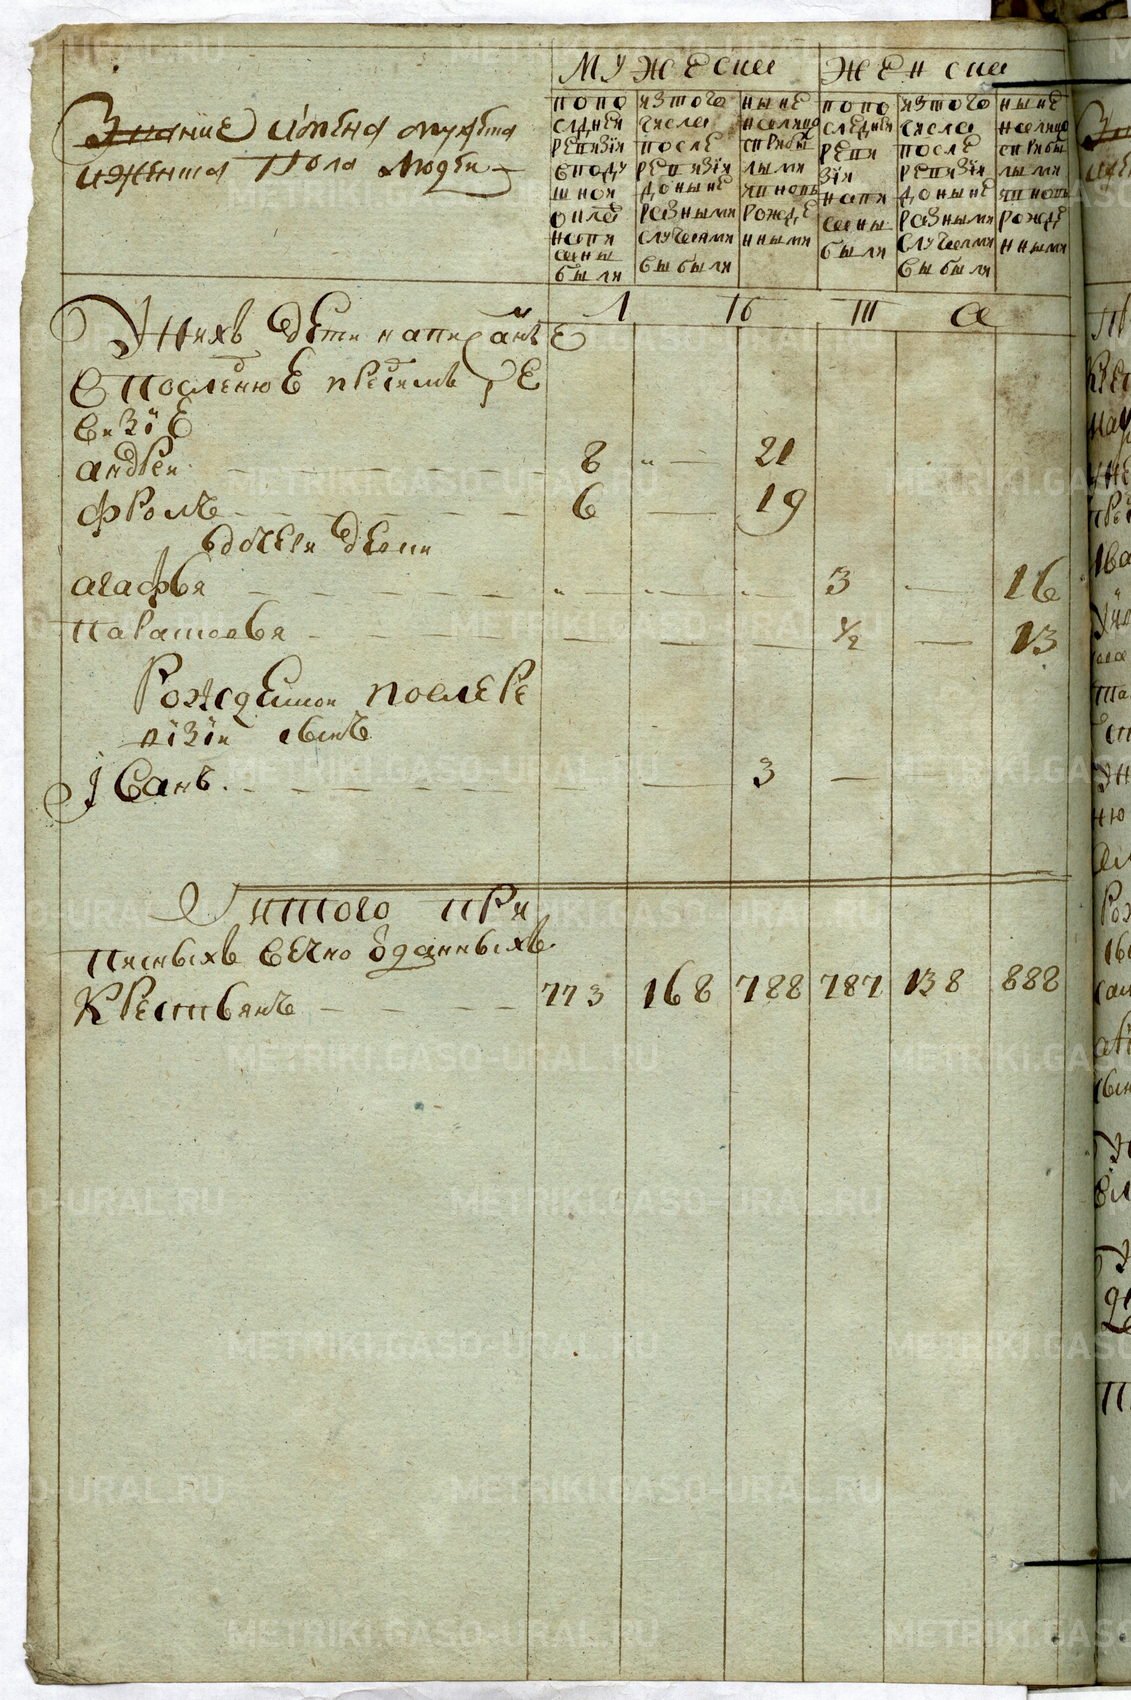 МУЖЕСКИ
ЖЕНСКИ
Знание имена мужеска
и женска Пола Людеи
попо
следнеи
ревизiи
в поду
шнои
окла
напи
саны
были
из того
числа
после
ревизiи
до ныне
разными
случаями
выбыли
ныне
на лицо
с прибы
лыми
и вновь
рожде
нными
попо
следнеи
реви
зiи
напи
саны
были
из того
числа
после
ревизiи
до ныне
разными
случаями
выбыли
ныне
на лицо
с прибы
лыми
и вновь
рожде
нными
У них дети написаные
в последнюю пред сим ре
визiе
андреи 8 21
фролъ 6 19
дочери девки
агафья 3 16
парасковья 1/2 13
Рожденнои после ре
визiи сынъ
Iванъ 3
Итого при
писныхъ вечно отданныхъ
крестьянъ 773 168 788 787 138 888
METRIKI.GASO-URAL.RU